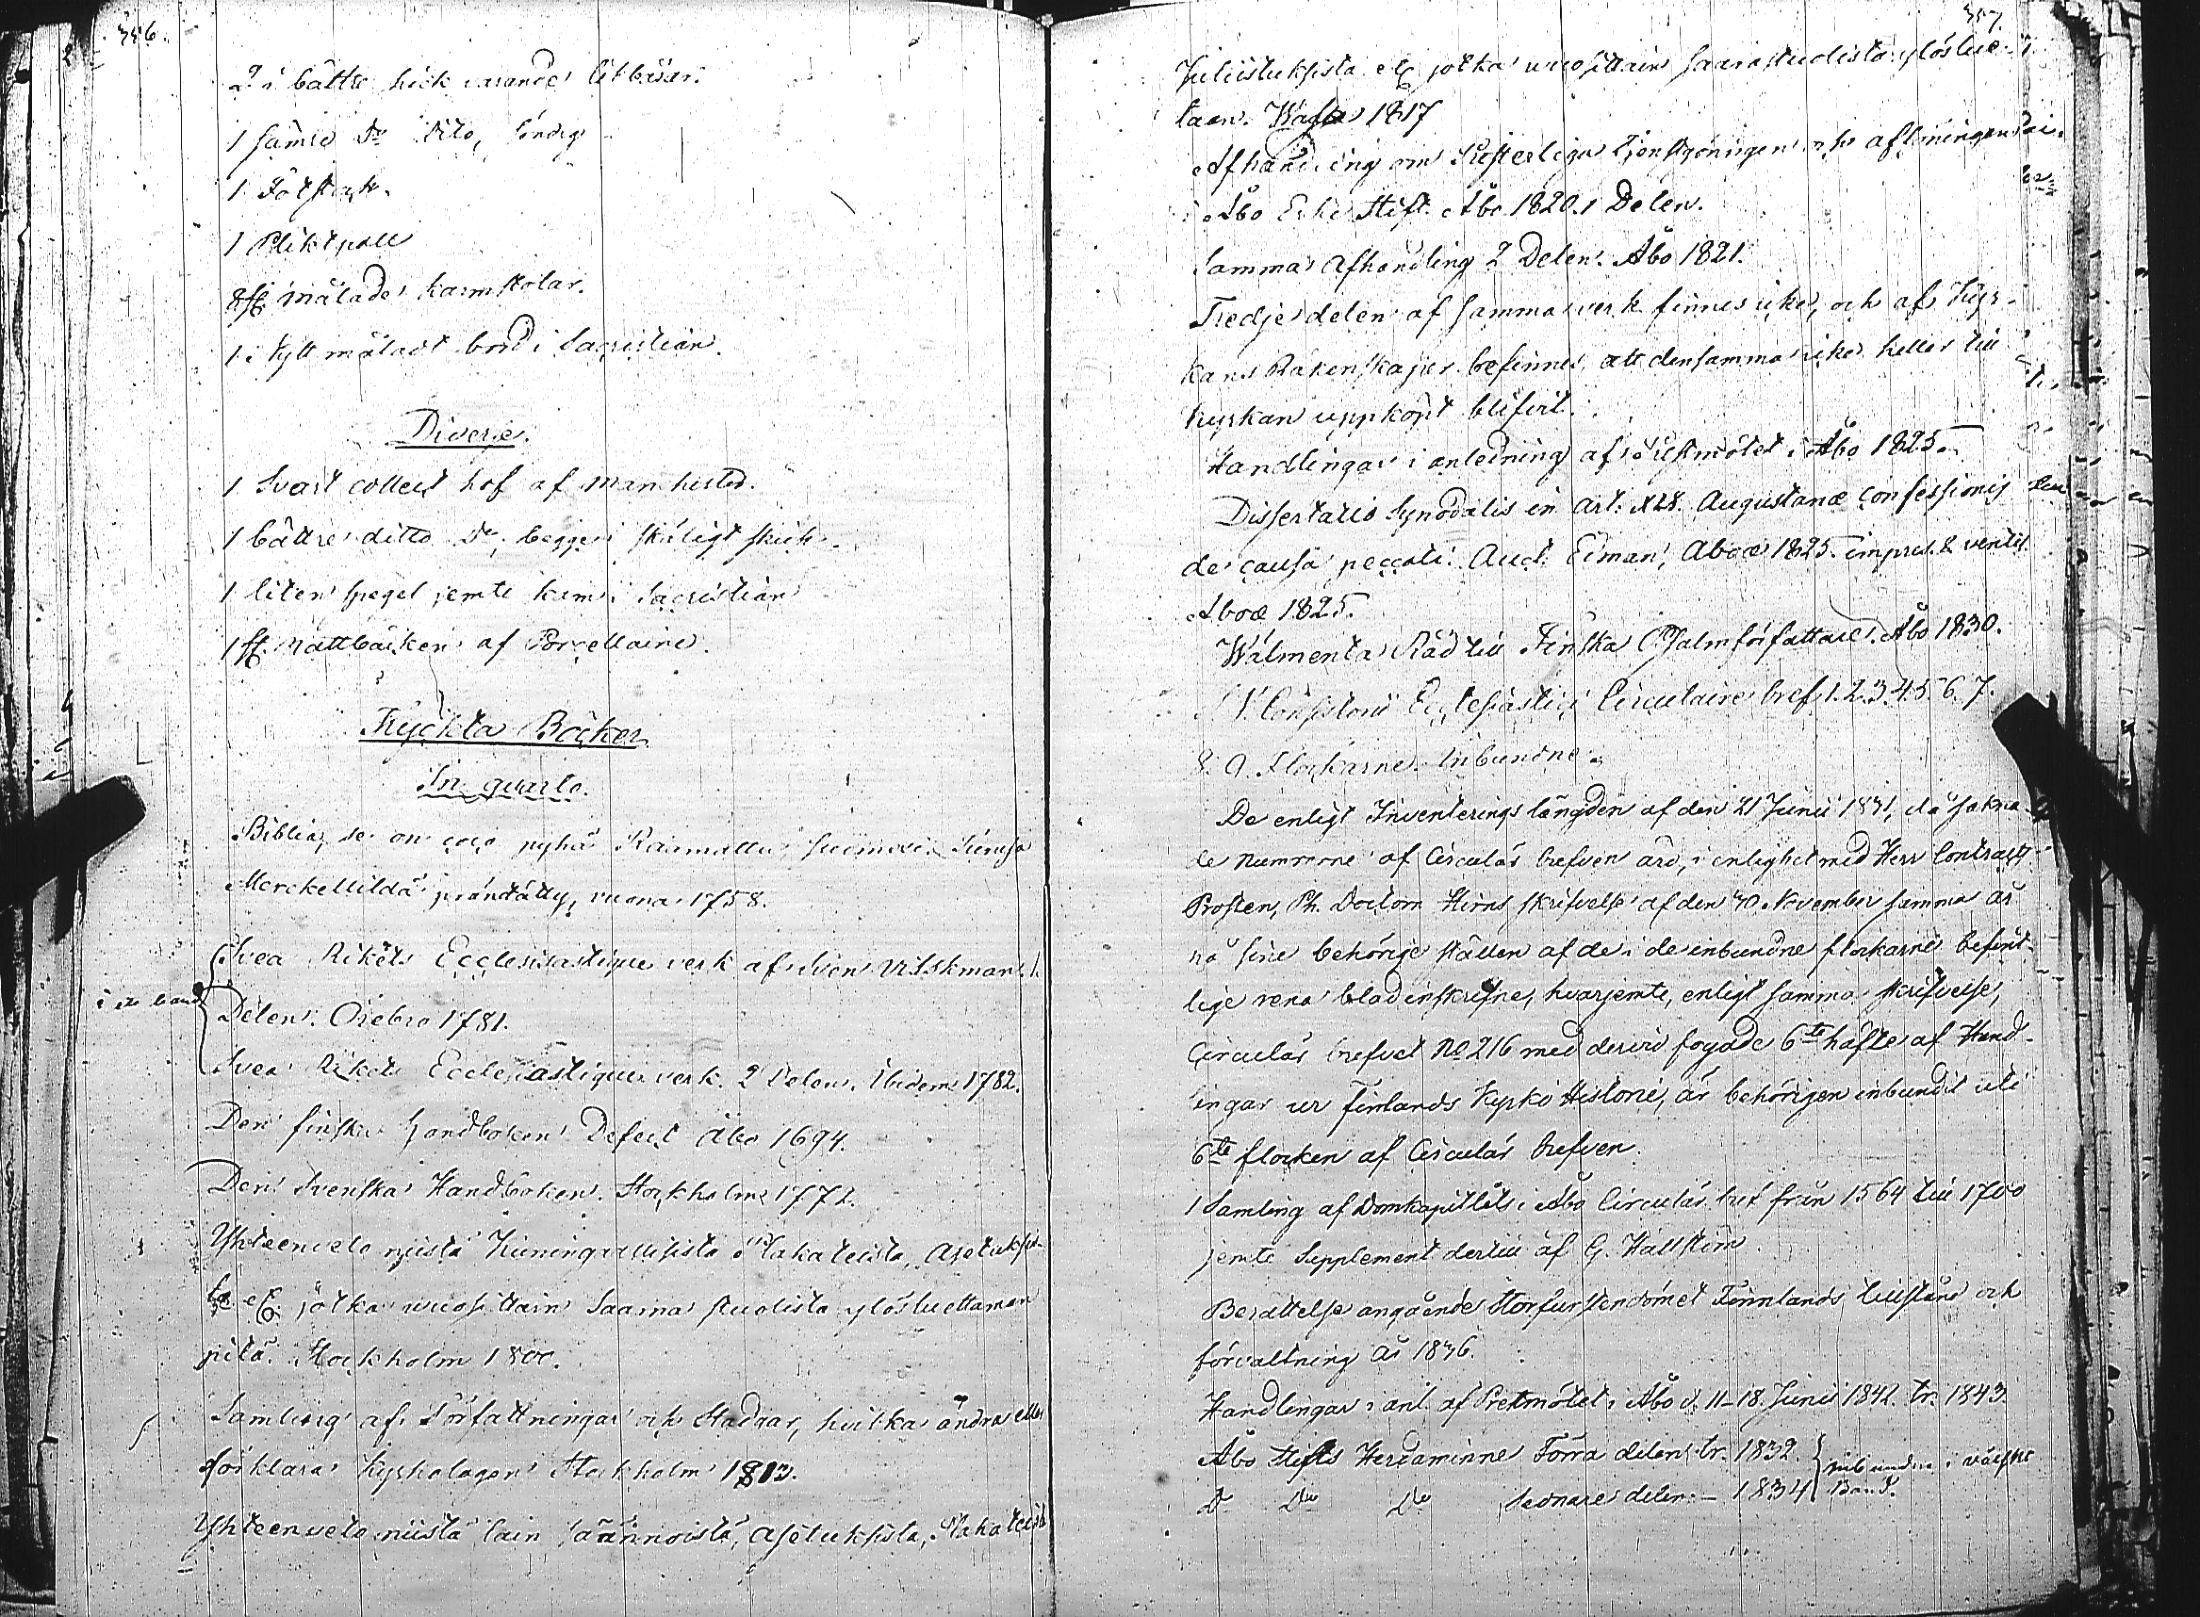 356.
2 i bättre skick varande likbårar.
1 sämre Do Dito, söndrig
1 Fotstock.
1 Pliktpall
8 st. målade karmstolar.
1 måladt bord i Sacristian.
Diverse.
1 Svart collect håf af manchester.
1 bättre ditto Do, begge i skäligt skick.
1 liten spegel jemte kam i Sacristian
1 st. nattbäcken af Porcellaine.
Tryckta Böcker
In quarto.
Biblia, se on coco pyhä Raamattu, Suomexi
Merckellildä präntätty, vuona 1758.
Svea Rikets Ecclesiastique verk af Sven Wilskman 1.
i ett band
Delen. Örebro 1781.
Svea Rikets Ecclesiastique verk. 2 Delen. Ibidem 1782.
Den finska Handboken Defect Åbo 1694.
Den Svenska Handboken. Stockholm 1772.
Yhteenveto niistä Kuningallisista Plakateista, Asetuksis-
ta etc. jotka vuosittain Saarna stuolista ylösluettaman
pitä. Stockholm 1800.
Samling af Författningar och Stadgar, hvilka ändra eller
förklara Kyrkolagen Stockholm 1813.
Yhteenveto niistä lain säännöistä, Asetuksista, Plakateista
357.
Julistuksista etc jotka vuosittain saarnastuolista ylöslue-
taan. Wasa 1817
Afhandling om Presterliga Tjenstgöringen och aflöningen
i Åbo Erke Stift. Åbo 1820. 1 Delen.
Samma afhandling 2 Delen. Åbo 1821.
Tredje delen af samma verk finnes icke, och af Kyr-
kans Räkenskaper befinnes, att densamma icke heller till
kyrkan uppköpt blifvit.
Handlingar i anledning af Prestmötet i Åbo 1825.
Dissertatio Synodalis in Art: XIX. Augustanæ Confessionis
de causa peccati. Auct. Eiman, Aboæ 1825. impres. & ventil.
Aboæ 1825.
Wälmenta Råd till Finska Psalmförfattare. Åbo 1830.
V. Consistorii Ecclesiastici Circulaire bref 1. 2. 3. 4. 5. 6. 7.
8. 9. Flockarne Inbundne.
De enligt Inventerings längden af den 21 Junii 1831, då sakna-
de numrorne af Circulär brefven äro, i enlighet med Herr Contracts
Prosten, Ph. Doctorn Hirns skrifvelse af den 30 November samma år
på sine behörige ställen af de i de inbundne flockarne befint-
lige rena blad inskrifne, hvarjemte, enligt samma skrifvelse,
Circulär brefvet No 216 med dervid fogade 6te häfte af Hand-
lingar ur Finlands Kyrko Historie, är behörigen inbundit uti
6te flocken af Circulär brefven.
1 Samling af Domkapitlets i Åbo Circulär bref från 1564 till 1700
jemte Supplement dertill af G. Hällström
Berättelse angående Storfurstendömet Finnlands tillstånd och
förvaltning år 1836.
Handlingar i anl. af Prestmötet i Åbo d. 11-18. Junii 1842. tr. 1843.
Åbo Stifts Herdaminne Förra delen tr. 1832.
Do Do Do Sednare delen - 1834
inbundne i hvarsitt Band.